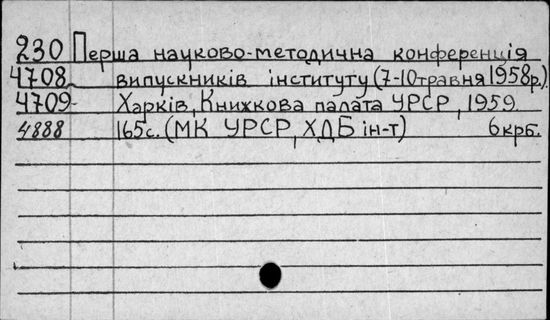 230 Перша науково-методична конференція
4708 випускників інституту (7-10 травня 1958р.).
4709- Харків, Книжкова палата УРСР, 1959.
4888 165с. (МК УРСР, ХДБ ін-т) 6крб.